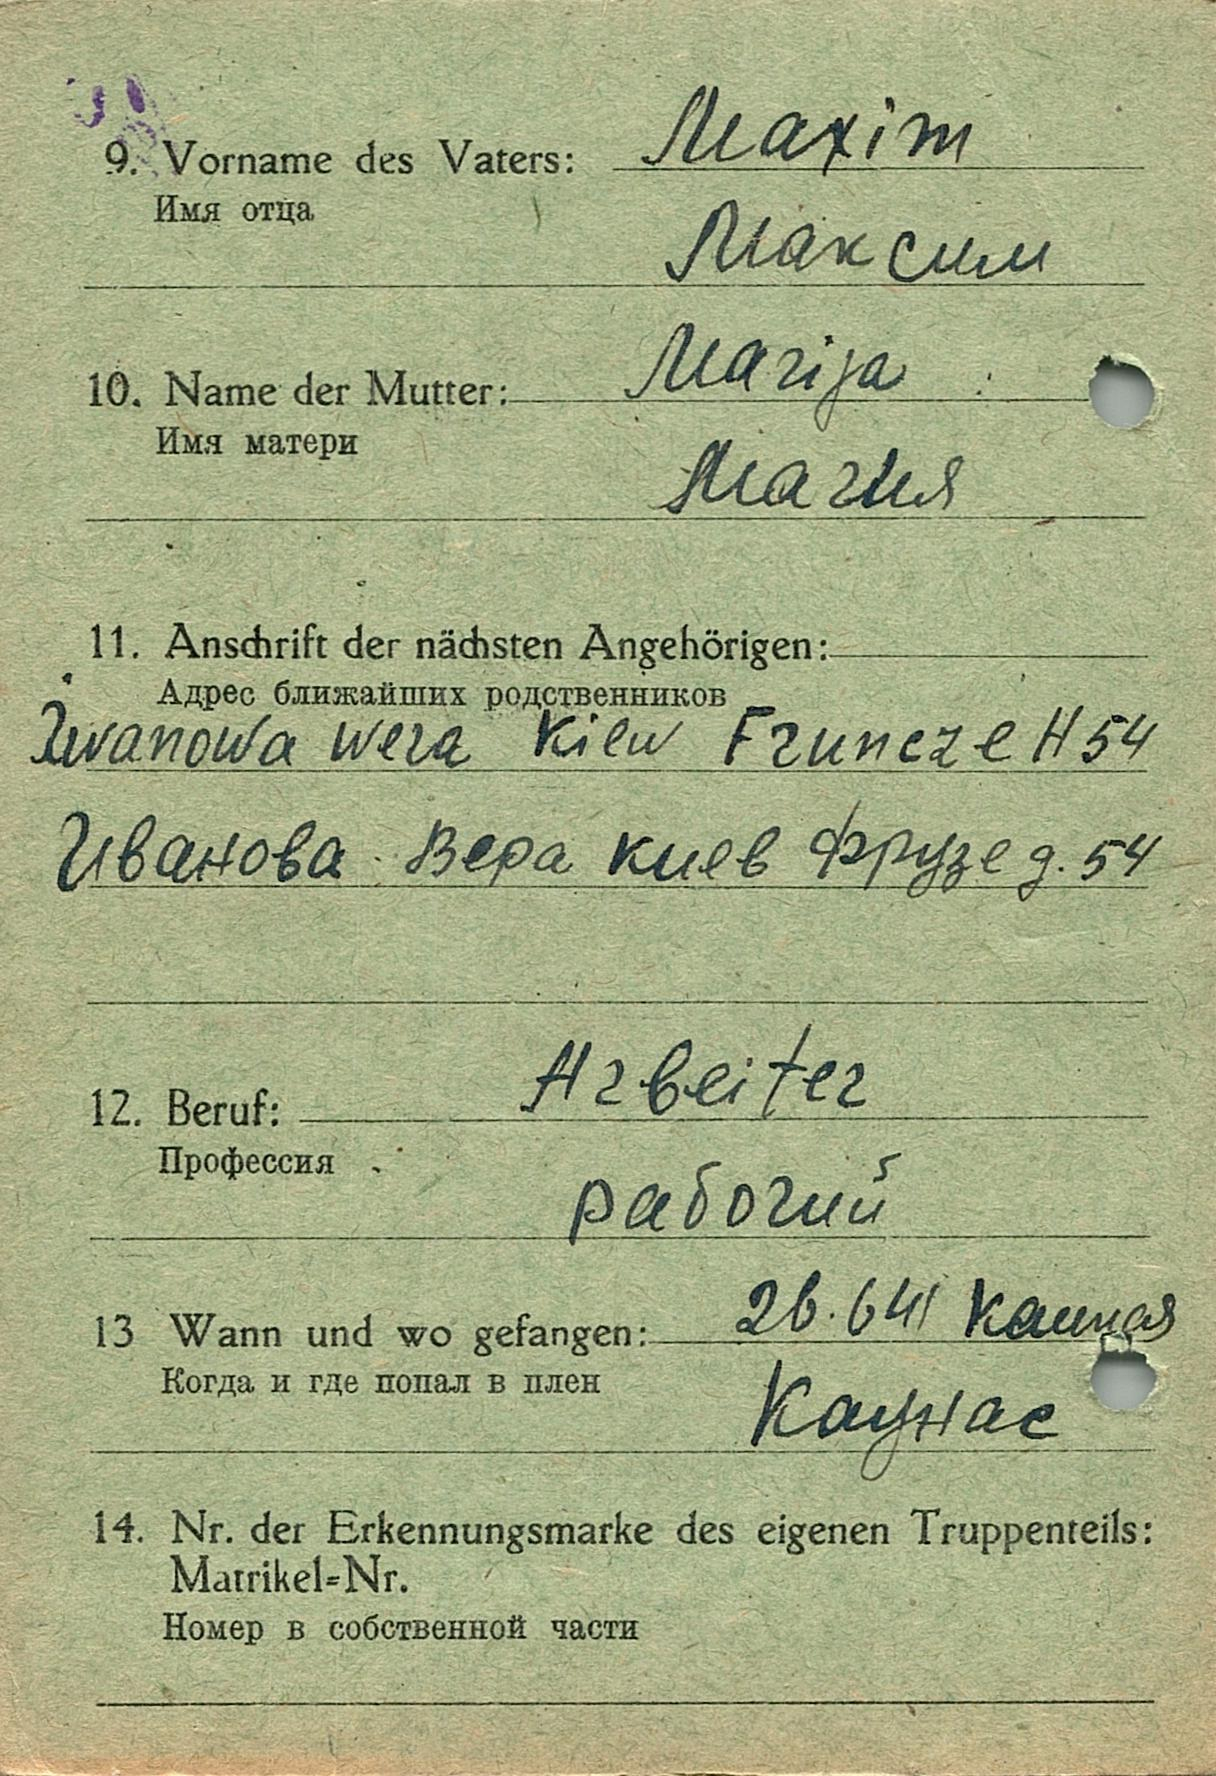 9. Vorname des Vaters: Maxim
Имя отца
Максим
10. Name der Mutter: Marija
Имя матери
Мария
11. Anschrift der nächsten Angehörigen:
Адрес ближайших родственников
Iwanowa Wera Kiew Fruncze H 54
Иванова Вера Киев Фрузе д. 54
12. Beruf: Arbeiter
Профессия
рабочий
13 Wann und wo gefangen: 26.641 Kaunas
Когда и где попал в плен
Каунас
14. Nr. der Erkennungsmarke des eigenen Truppenteils:
Matrikel=Nr.
Номер в собственной части